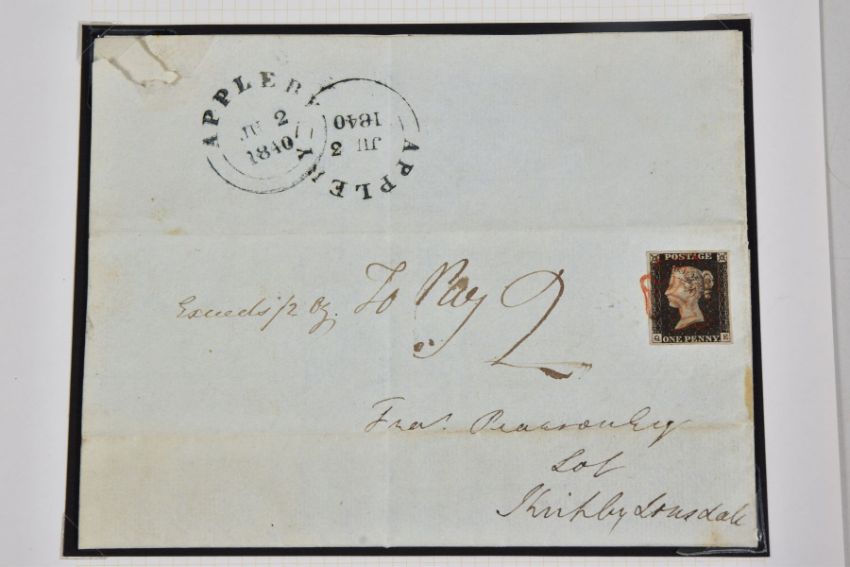 APPLEBY
JU 2
1840
APPLEBY
JU 2
1840
POSTAGE
ONE PENNY
Exceeds 1/2 Oz. To Pay 2
Fras. Pearson Esq
Sol
Kirkby Lonsdale